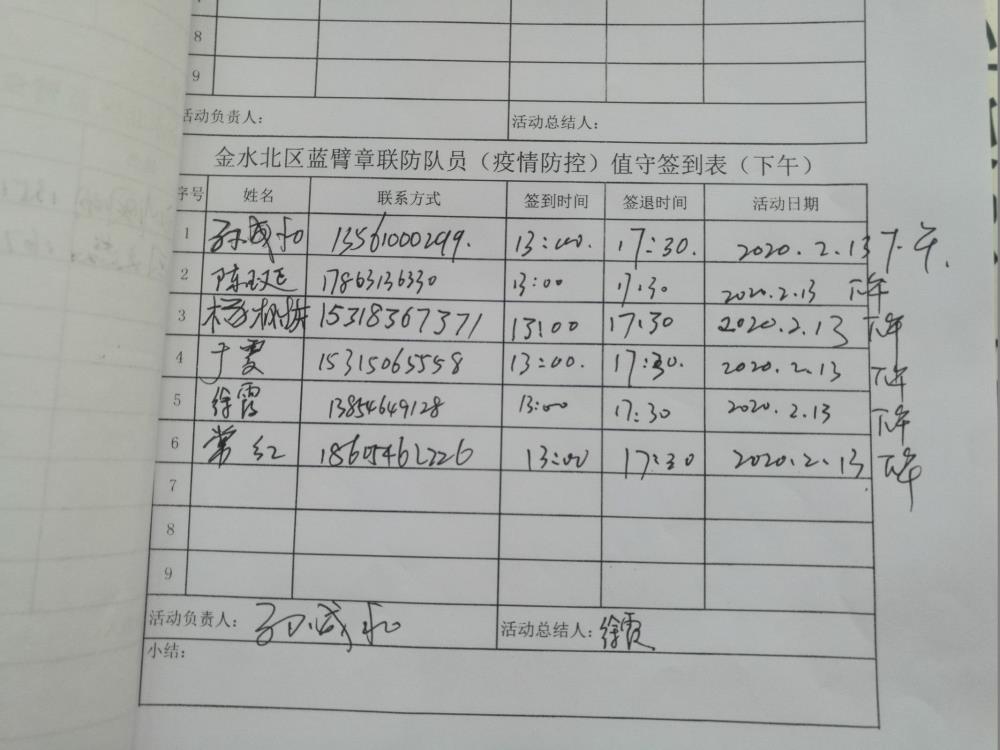 8
9
活动负责人： 活动总结人：
金水北区蓝臂章联防队员（疫情防控）值守签到表（下午）
序号 姓名 联系方式 签到时间 签退时间 活动日期
1 13561000299. 13:00. 17:30. 2020.2.13 下午.
2 17863136330 13:00 17:30 2020.2.13 下午
3 15318367371 13:00 17:30 2020.2.13 下午
4 于霞 15315065558 13:00. 17:30. 2020.2.13 下午
5 徐霞 13854649128 13:00 17:30 2020.2.13 下午
6 常红 18605462226 13:00 17:30 2020.2.13 下午
7
8
9
活动负责人： 活动总结人：徐霞
小结：